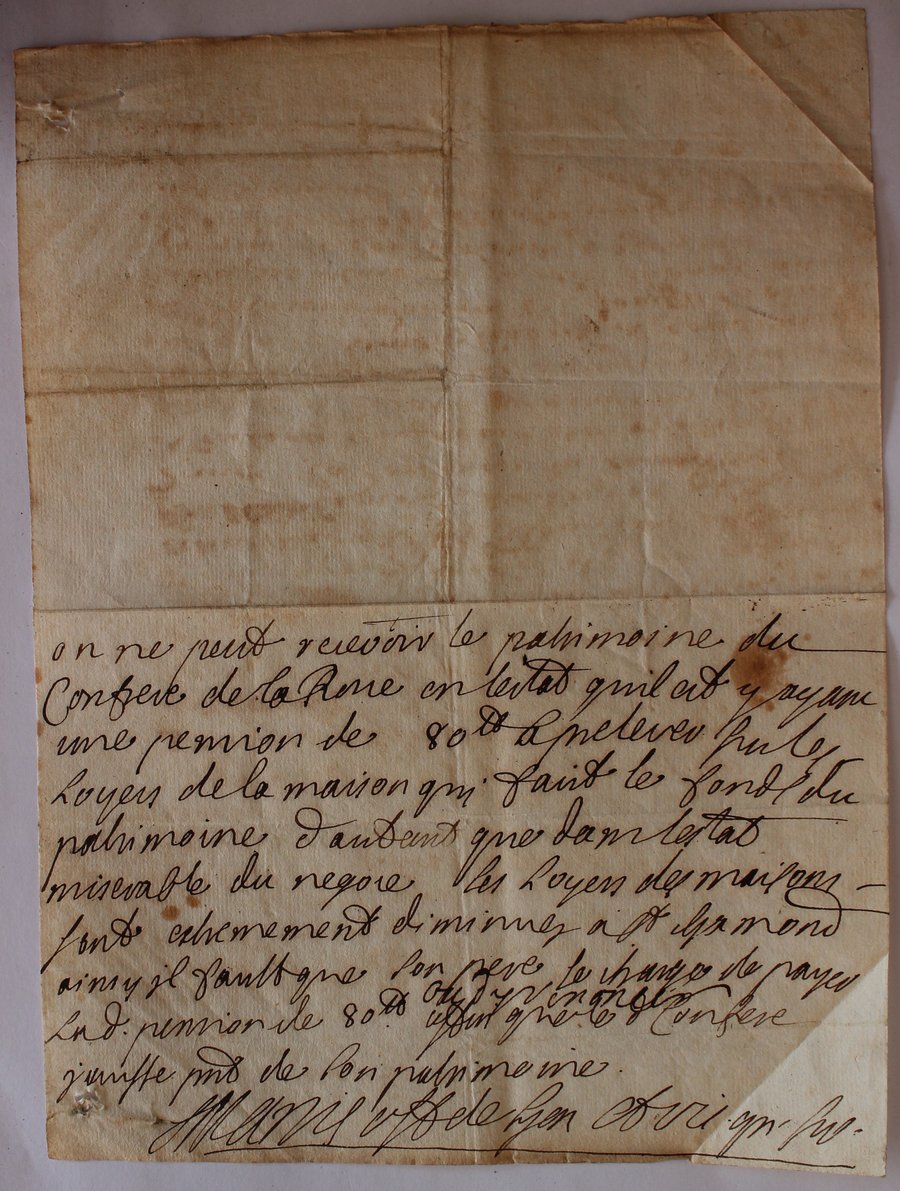 on ne peut recevoir le patrimoine du
Confrere de la Roue en lestat quil est y ayant
une pension de 80tt a prelever sur les
Loyers de la maison qui faict le fonds du
patrimoine d'autant que dans lestat
miserable du negoce les Loyers des maisons
sont extremement diminues a St Chamond
ainsy il fault que son pere se charge de payer
Lad. pension de 80tt ou d'y renoncer affin que led Confrere
jouisse pnt de son patrimoine.
Manis de Lyon